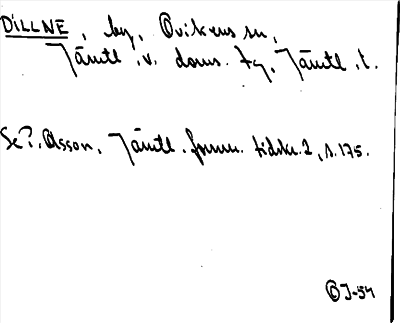 DILLNE, by, Ovikens sn,
Jämtl. v. doms. tg, Jämtl. l.
Se P. Olsson, Jämtl. fornm. tidskr. 2, s. 175.
J-54